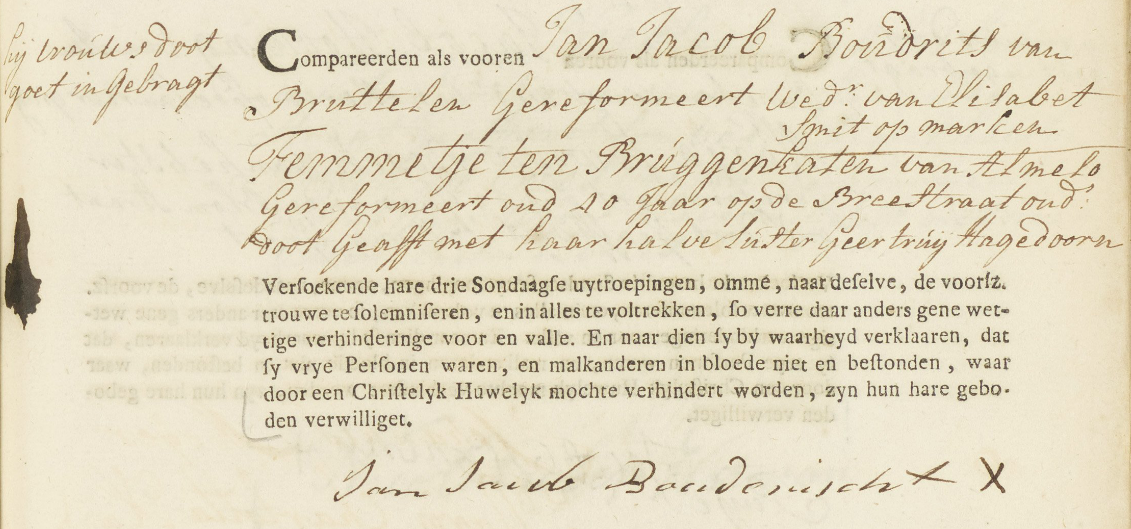 hij vrouws doot
goet in Gebragt
Compareerden als vooren Jan Jacob Boudrits van
Bruttelen Gereformeert Wedr. van Elisabet
Smit op marken
Femmetje ten Bruggenkaten van Almelo
Gereformeert oud 40 Jaar op de Breestraat oudrs
doot Geasst met haar halve suster Geertruy Hagedoorn
Verſoekende hare drie Sondaagſe uytroepingen, omme, naar deſelve, de voorſz.
trouwe te ſolemniſeren, en in alles te voltrekken, ſo verre daar anders gene wet-
tige verhinderinge voor en valle. En naar dien ſy by waarheyd verklaaren, dat
ſy vrye Perſonen waren, en malkanderen in bloede niet en beſtonden, waar
door een Chriſtelyk Huwelyk mochte verhindert worden, zyn hun hare gebo-
den verwilliget.
Jan Jacob Boudenischt X